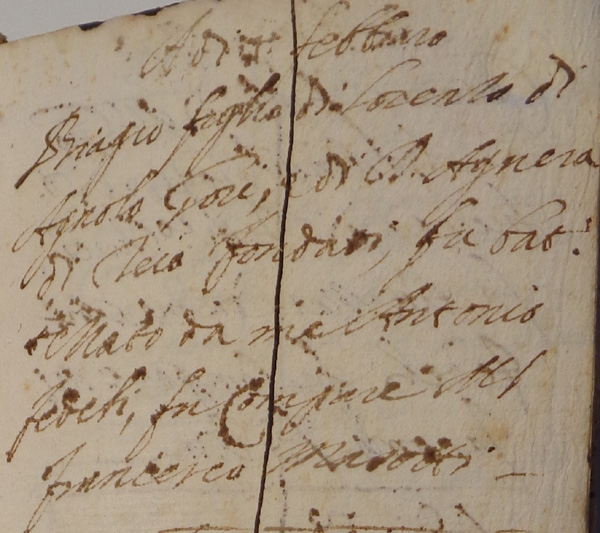 A di febbraro
Biagio figlio di Lorenzo di
Agnolo Gori, e di D. Agnesa
di Fondati, fu bat:
tezzato da me Antonio
Fedeli, fu Compare
Francesco